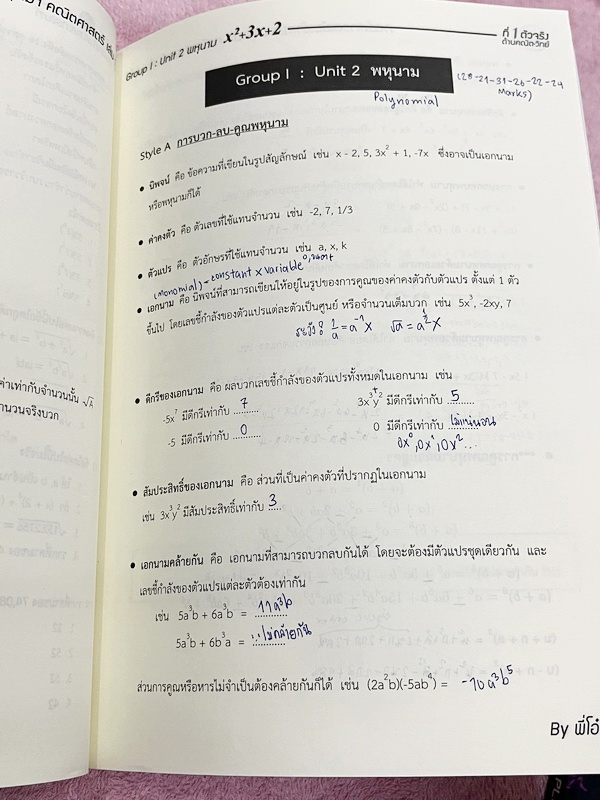 Group I : Unit 2 พหุนาม x²+3x+2
ที่ 1 ตัวจริง
ด้านคณิต-วิทย์
Group I : Unit 2 พหุนาม
(28-21-31-26-22-24
Marks)
Polynomial
Style A การบวก-ลบ-คูณพหุนาม
• นิพจน์ คือ ข้อความที่เขียนในรูปสัญลักษณ์ เช่น x - 2, 5, 3x² + 1, -7x ซึ่งอาจเป็นเอกนาม
หรือพหุนามก็ได้
• ค่าคงตัว คือ ตัวเลขที่ใช้แทนจำนวน เช่น -2, 7, 1/3
• ตัวแปร คือ ตัวอักษรที่ใช้แทนจำนวน เช่น a, x, k
(monomial) - constant x variable
• เอกนาม คือ นิพจน์ที่สามารถเขียนให้อยู่ในรูปของการคูณของค่าคงตัวกับตัวแปร ตั้งแต่ 1 ตัว
ขึ้นไป โดยเลขชี้กำลังของตัวแปรแต่ละตัวเป็นศูนย์ หรือจำนวนเต็มบวก เช่น 5x³, -2xy, 7
ระวัง 1/a = a⁻¹ X √a = a^½ X
ค่าเท่ากับจำนวนนั้น √A
านวนจริงบวก
• ดีกรีของเอกนาม คือ ผลบวกเลขชี้กำลังของตัวแปรทั้งหมดในเอกนาม เช่น
-5x⁷ มีดีกรีเท่ากับ 7 3x³y² มีดีกรีเท่ากับ 5
-5 มีดีกรีเท่ากับ 0 0 มีดีกรีเท่ากับ ไม่แน่นอน
0x⁰, 0x¹, 0x²...
• สัมประสิทธิ์ของเอกนาม คือ ส่วนที่เป็นค่าคงตัวที่ปรากฏในเอกนาม
เช่น 3x³y² มีสัมประสิทธิ์เท่ากับ 3
• เอกนามคล้ายกัน คือ เอกนามที่สามารถบวกลบกันได้ โดยจะต้องมีตัวแปรชุดเดียวกัน และ
เลขชี้กำลังของตัวแปรแต่ละตัวต้องเท่ากัน
เช่น 5a³b + 6a³b = 11a³b
5a³b + 6b³a = ไม่คล้ายกัน
ส่วนการคูณหรือหารไม่จำเป็นต้องคล้ายกันก็ได้ เช่น (2a²b)(-5ab⁴) = -10a³b⁵
By พี่โอ๋